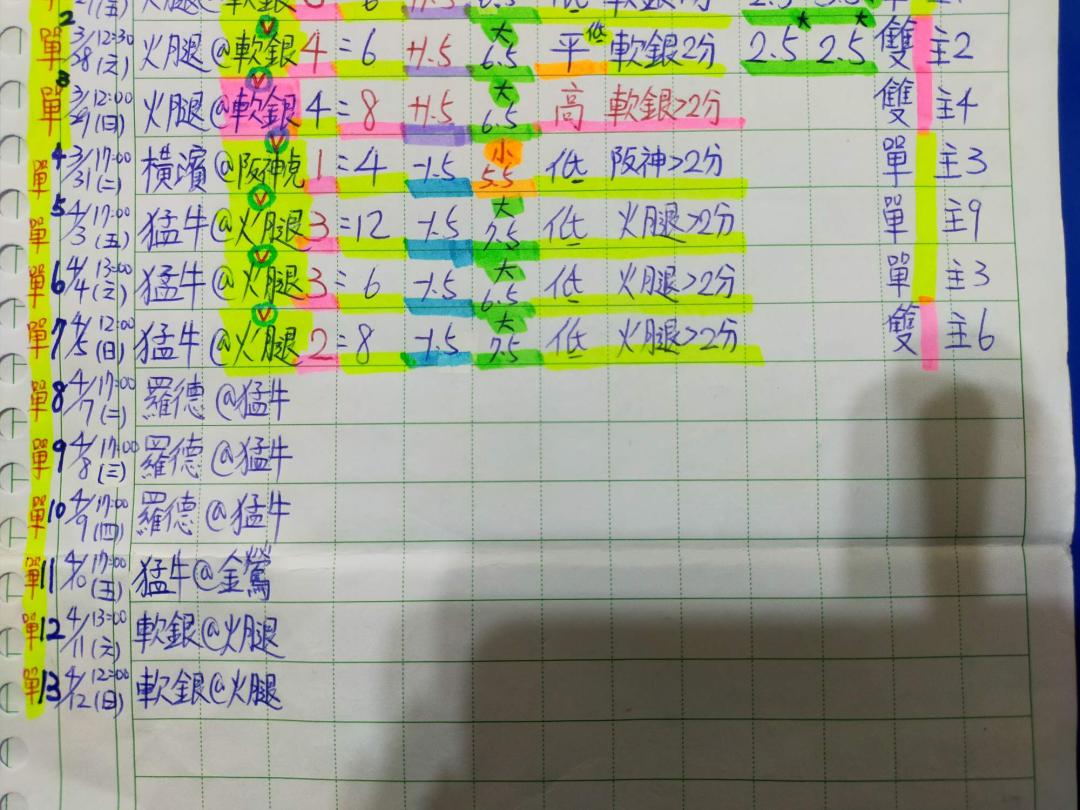 單 2 3/28 12:30 (六) 火腿@軟銀 4=6 +1.5 大 6.5 平 低 軟銀2分 2.5 2.5 雙 主2
單 3 3/29 12:00 (日) 火腿@軟銀 4=8 +1.5 大 6.5 高 軟銀>2分 雙 主4
單 4 3/31 17:00 (二) 橫濱@阪神 1=4 -1.5 小 5.5 低 阪神>2分 單 主3
單 5 4/3 17:00 (五) 猛牛@火腿 3=12 -1.5 大 7.5 低 火腿>2分 單 主9
單 6 4/4 13:00 (六) 猛牛@火腿 3=6 -1.5 大 6.5 低 火腿>2分 單 主3
單 7 4/5 12:00 (日) 猛牛@火腿 2=8 -1.5 大 7.5 低 火腿>2分 雙 主6
單 8 4/7 17:00 (二) 羅德@猛牛
單 9 4/8 17:00 (三) 羅德@猛牛
單 10 4/9 17:00 (四) 羅德@猛牛
單 11 4/10 17:00 (五) 猛牛@金鶯
單 12 4/11 13:00 (六) 軟銀@火腿
單 13 4/12 12:00 (日) 軟銀@火腿